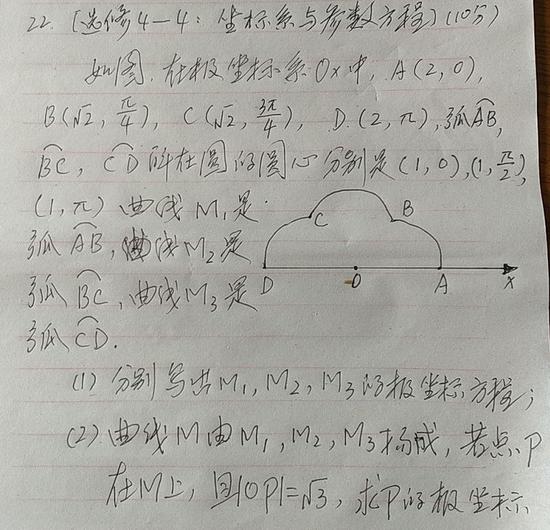 22. [选修4-4：坐标系与参数方程](10分)
如图, 在极坐标系Ox中, A(2,0),
B(√2, π/4), C(√2, 3π/4), D(2, π), 弧AB,
BC, CD所在圆的圆心分别是(1,0),(1,π/2),
(1,π) 曲线M₁是
弧AB, 曲线M₂是
弧BC, 曲线M₃是
弧CD.
C
B
D
O
A
x
(1) 分别写出M₁, M₂, M₃的极坐标方程;
(2) 曲线M由M₁, M₂, M₃构成, 若点P
在M上, 且|OP|=√3, 求P的极坐标